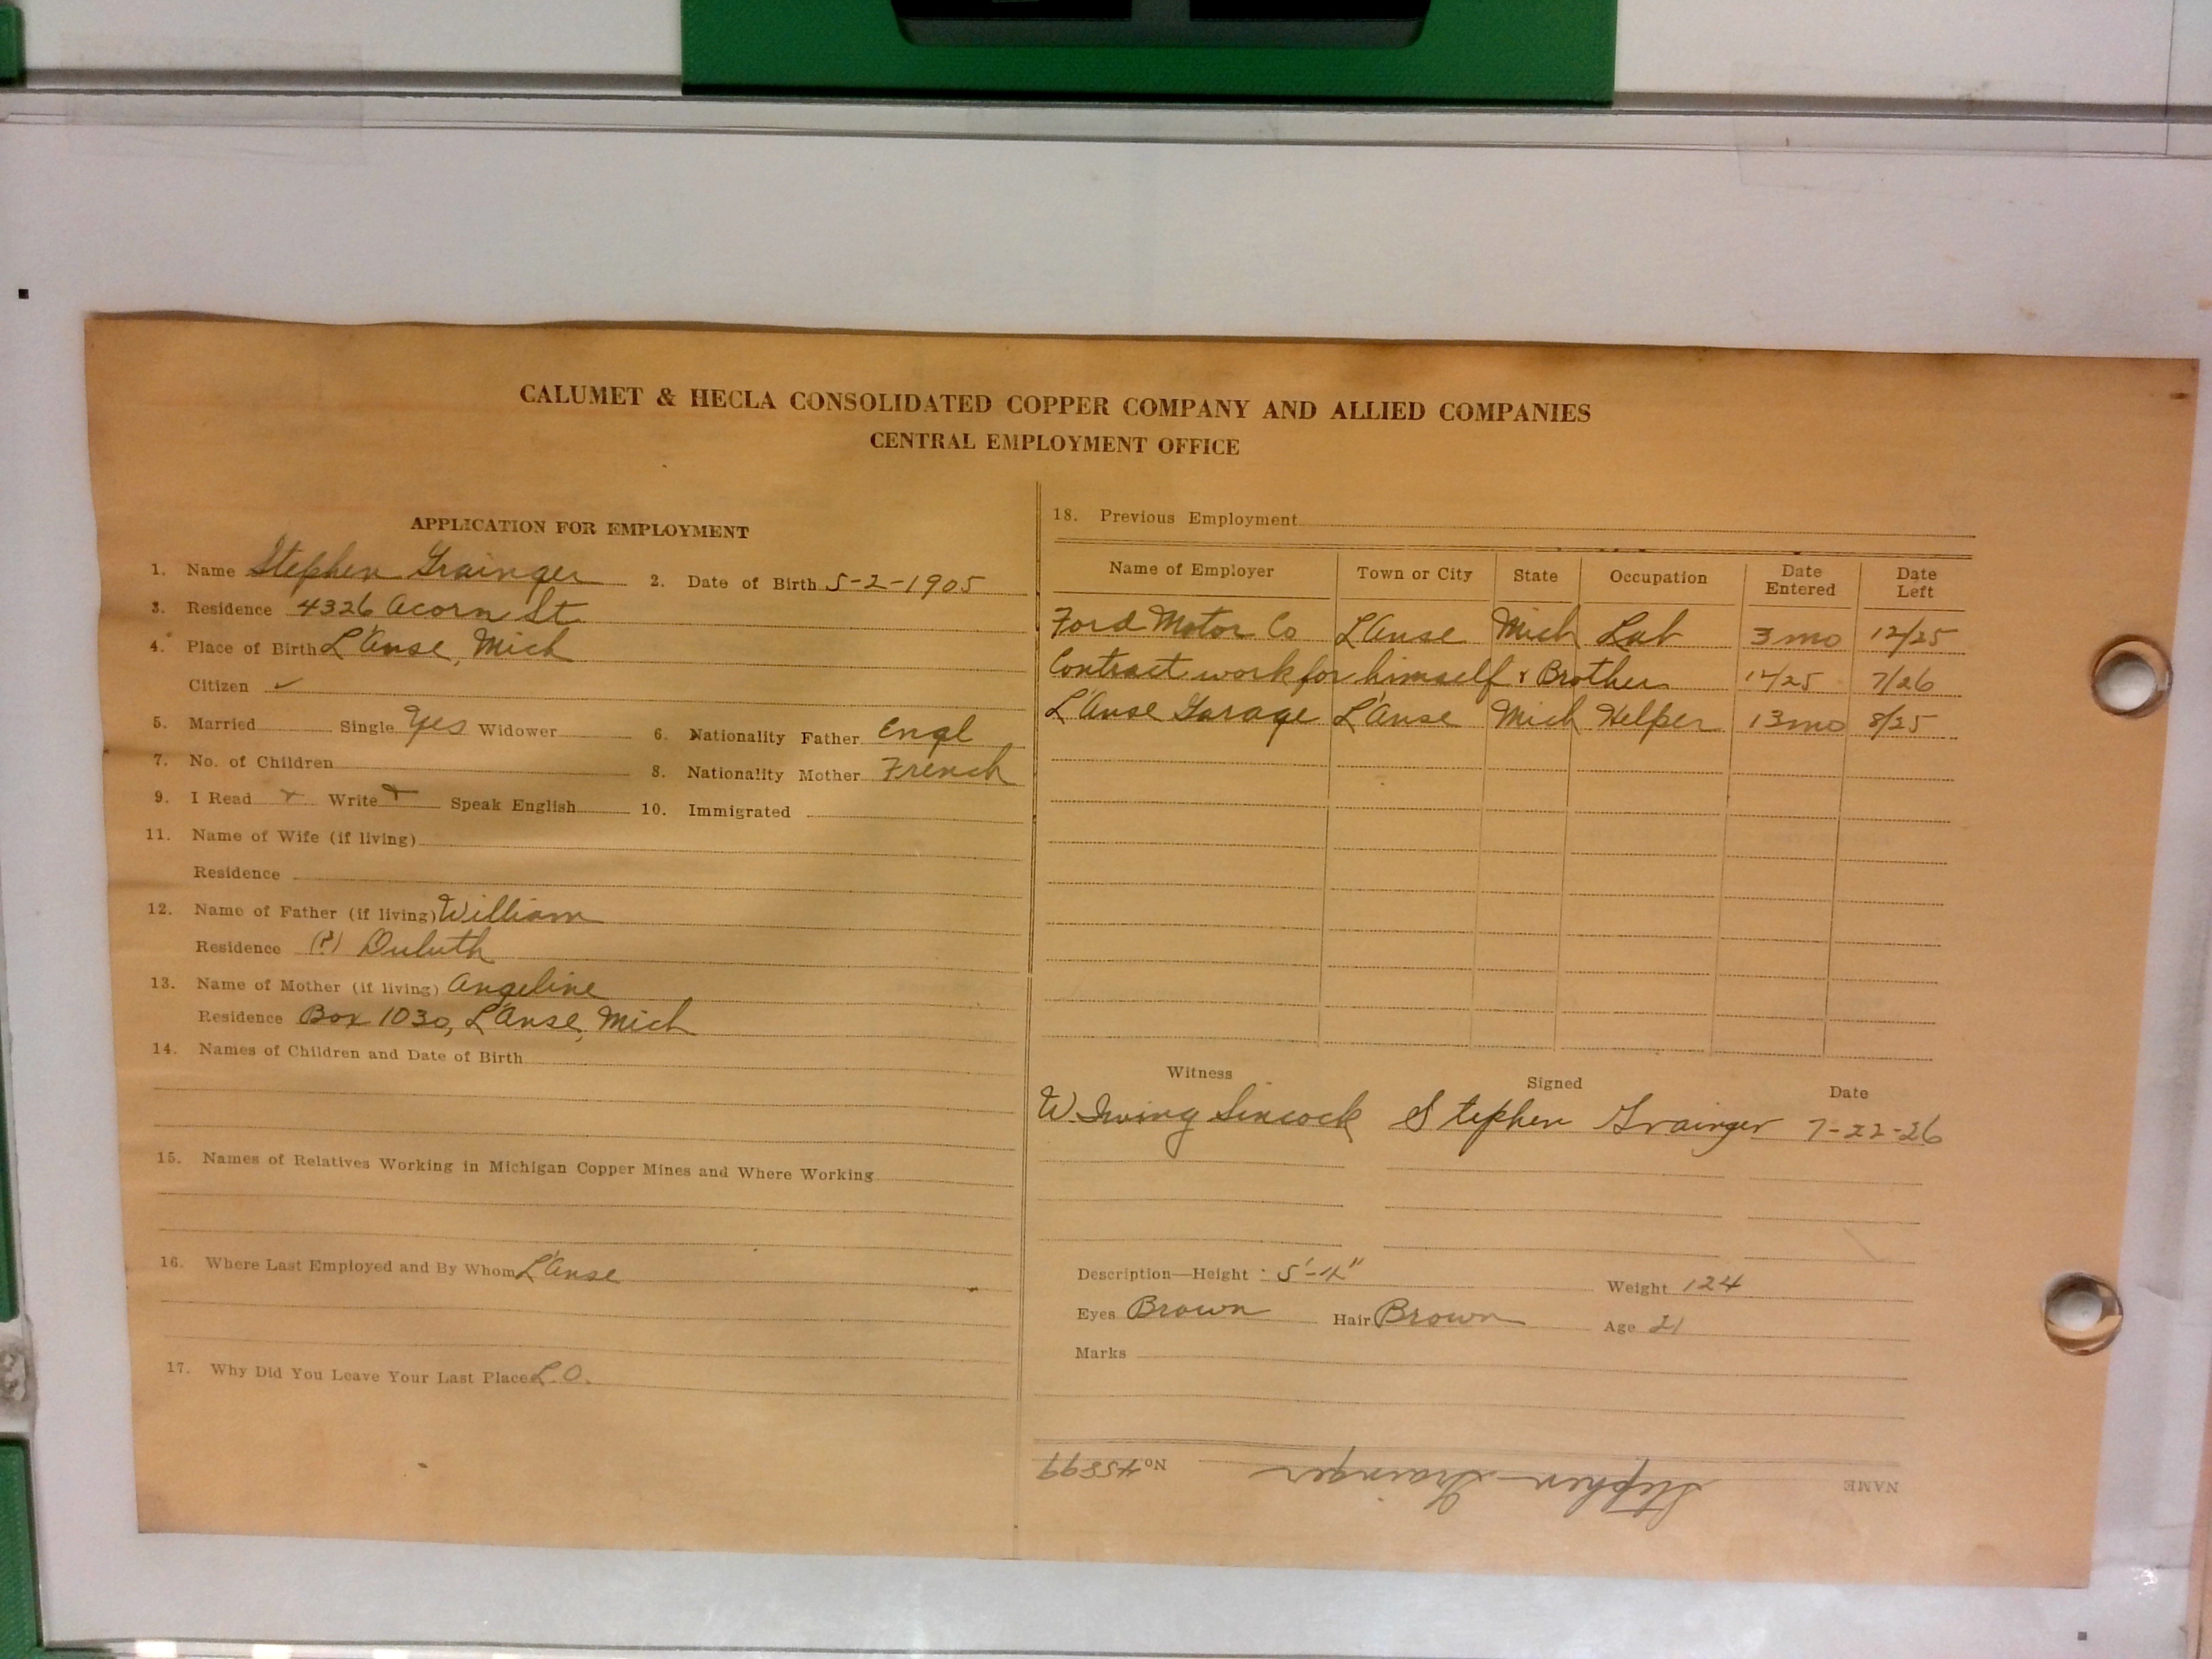 CALUMET & HECLA CONSOLIDATED COPPER COMPANY AND ALLIED COMPANIES
CENTRAL EMPLOYMENT OFFICE
APPLICATION FOR EMPLOYMENT
1. Name Stephen Grainger 2. Date of Birth 5-2-1905
3. Residence 4326 Acorn St.
4. Place of Birth L'Anse, Mich
Citizen ✓
5. Married Single Yes Widower 6. Nationality Father Engl
7. No. of Children 8. Nationality Mother French
9. I Read Write Speak English 10. Immigrated
11. Name of Wife (if living)
Residence
12. Name of Father (if living) William
Residence (?) Duluth
13. Name of Mother (if living) Angeline
Residence Box 1030, L'Anse, Mich
14. Names of Children and Date of Birth
15. Names of Relatives Working in Michigan Copper Mines and Where Working
16. Where Last Employed and By Whom L'Anse
17. Why Did You Leave Your Last Place L.O.
18. Previous Employment
Name of Employer Town or City State Occupation Date Entered Date Left
Ford Motor Co L'Anse Mich Lab 3 mo 12/25
Contract work for himself & Brother 7/26
L'Anse Garage L'Anse Mich Helper 13 mo 8/25
Witness Signed Date
W. Irving Sincock Stephen Grainger 7-22-26
Description—Height 5'- Weight 124
Eyes Brown Hair Brown Age 21
Marks
NAME Stephen Grainger No 45899